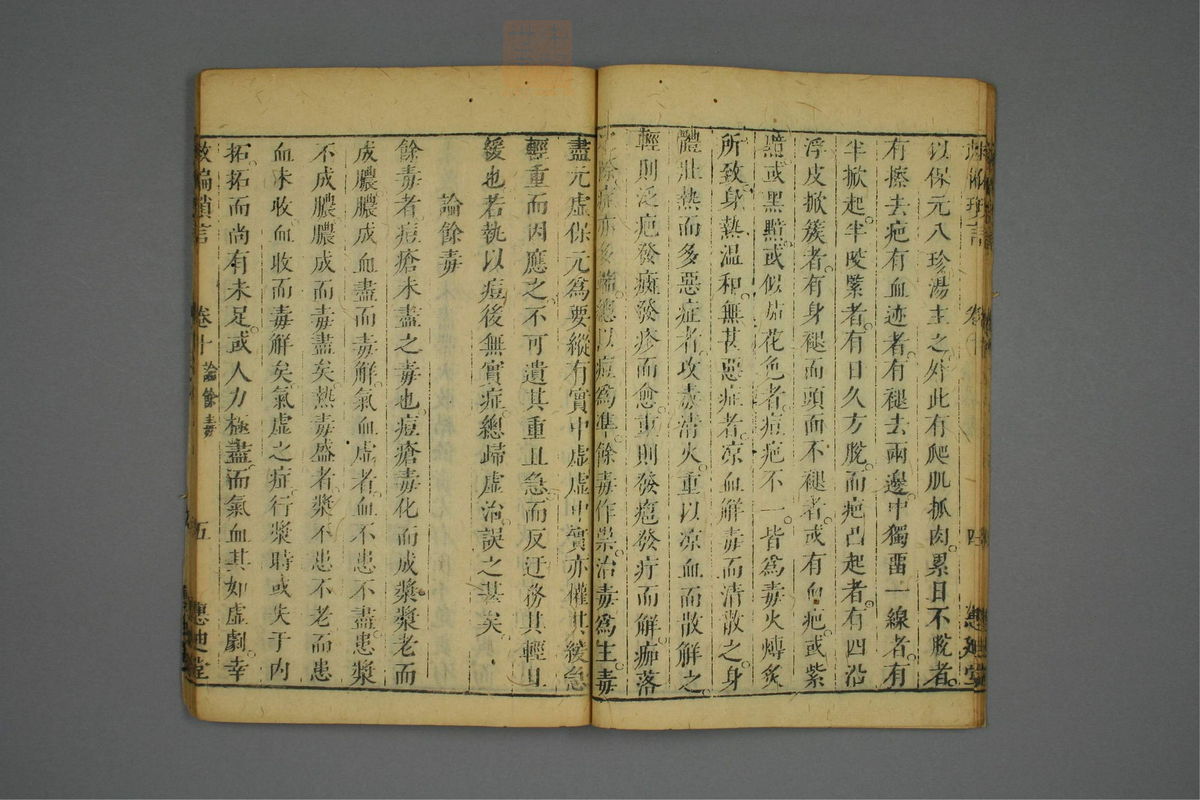 以保元八珍湯主之外此有爬肌抓肉累日不脫者
有擦去疤有血迹者有褪去兩邊中獨畱一線者有
半掀起半咬緊者有日久方脫而疤凸起者有四沿
浮皮掀簇者有身褪而頭面不褪者或有血疤或紫
黯或黑黯或似茄花色者痘疤不一皆爲毒火煿炙
所致身熱溫和無甚惡症者凉血解毒而清散之身
體壯熱而多惡症者攻毒清火重以凉血而散解之
輕則泛疤發癍發疹而愈重則發疱發疔而解痂落
餘症亦多端總以痘爲準餘毒作祟治毒爲主毒
盡元虛保元爲要縱有實中虛虛中實亦權其緩急
輕重而因應之不可遺其重且急而反迂務其輕且
緩也若執以痘後無實症總歸虛治誤之甚矣
論餘毒
餘毒者痘瘡未盡之毒也痘瘡毒化而成漿漿老而
成膿膿成血盡而毒解氣血虛者血不患不盡患漿
不成膿膿成而毒盡矣熱毒盛者漿不患不老而患
血未收血收而毒解矣氣虛之症行漿時或失于內
拓拓而尚有未足或人力極盡而氣血其如虛劇幸
救偏瑣言
卷十
論餘毒
五
惠迪堂